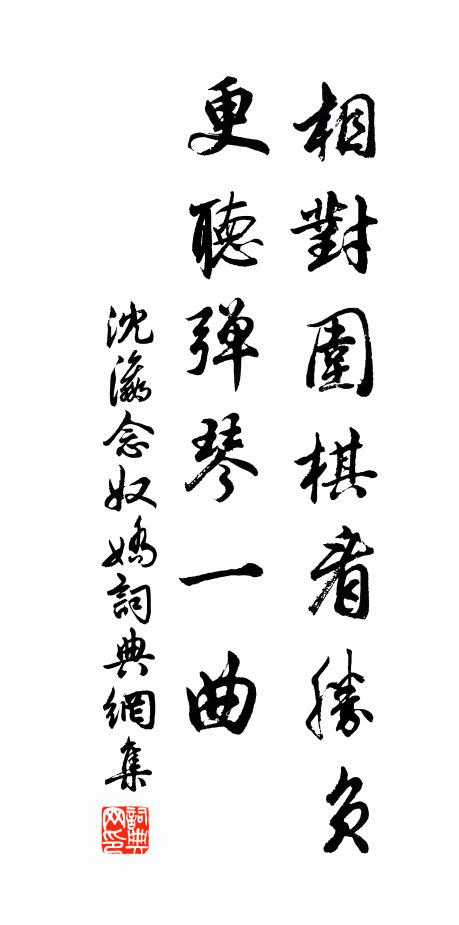 相對圍棋看勝負
更聽弹琴一曲
沈瀛念奴嬌詞典網集
詞典網印